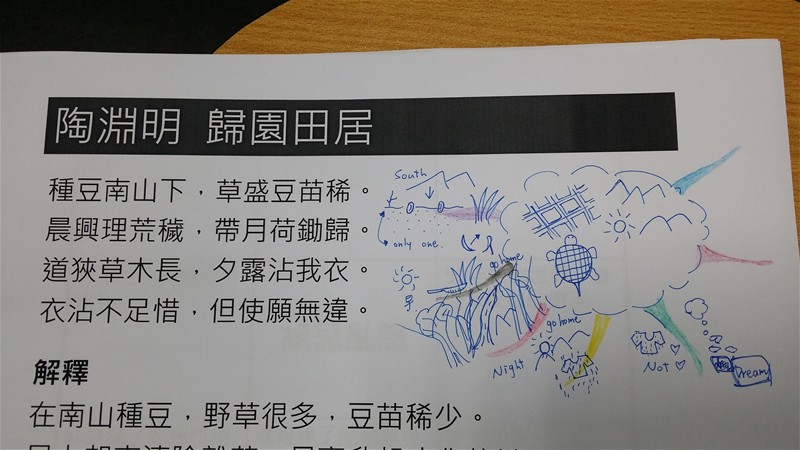 陶淵明 歸園田居
種豆南山下，草盛豆苗稀。
晨興理荒穢，帶月荷鋤歸。
道狹草木長，夕露沾我衣。
衣沾不足惜，但使願無違。
解釋
在南山種豆，野草很多，豆苗稀少。
South
only one.
go home
早
go home
Night
Not
Dream